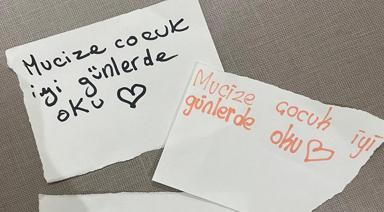 Mucize cocuk
iyi günlerde
oku ♡
Mucize çocuk iyi
günlerde oku ♡